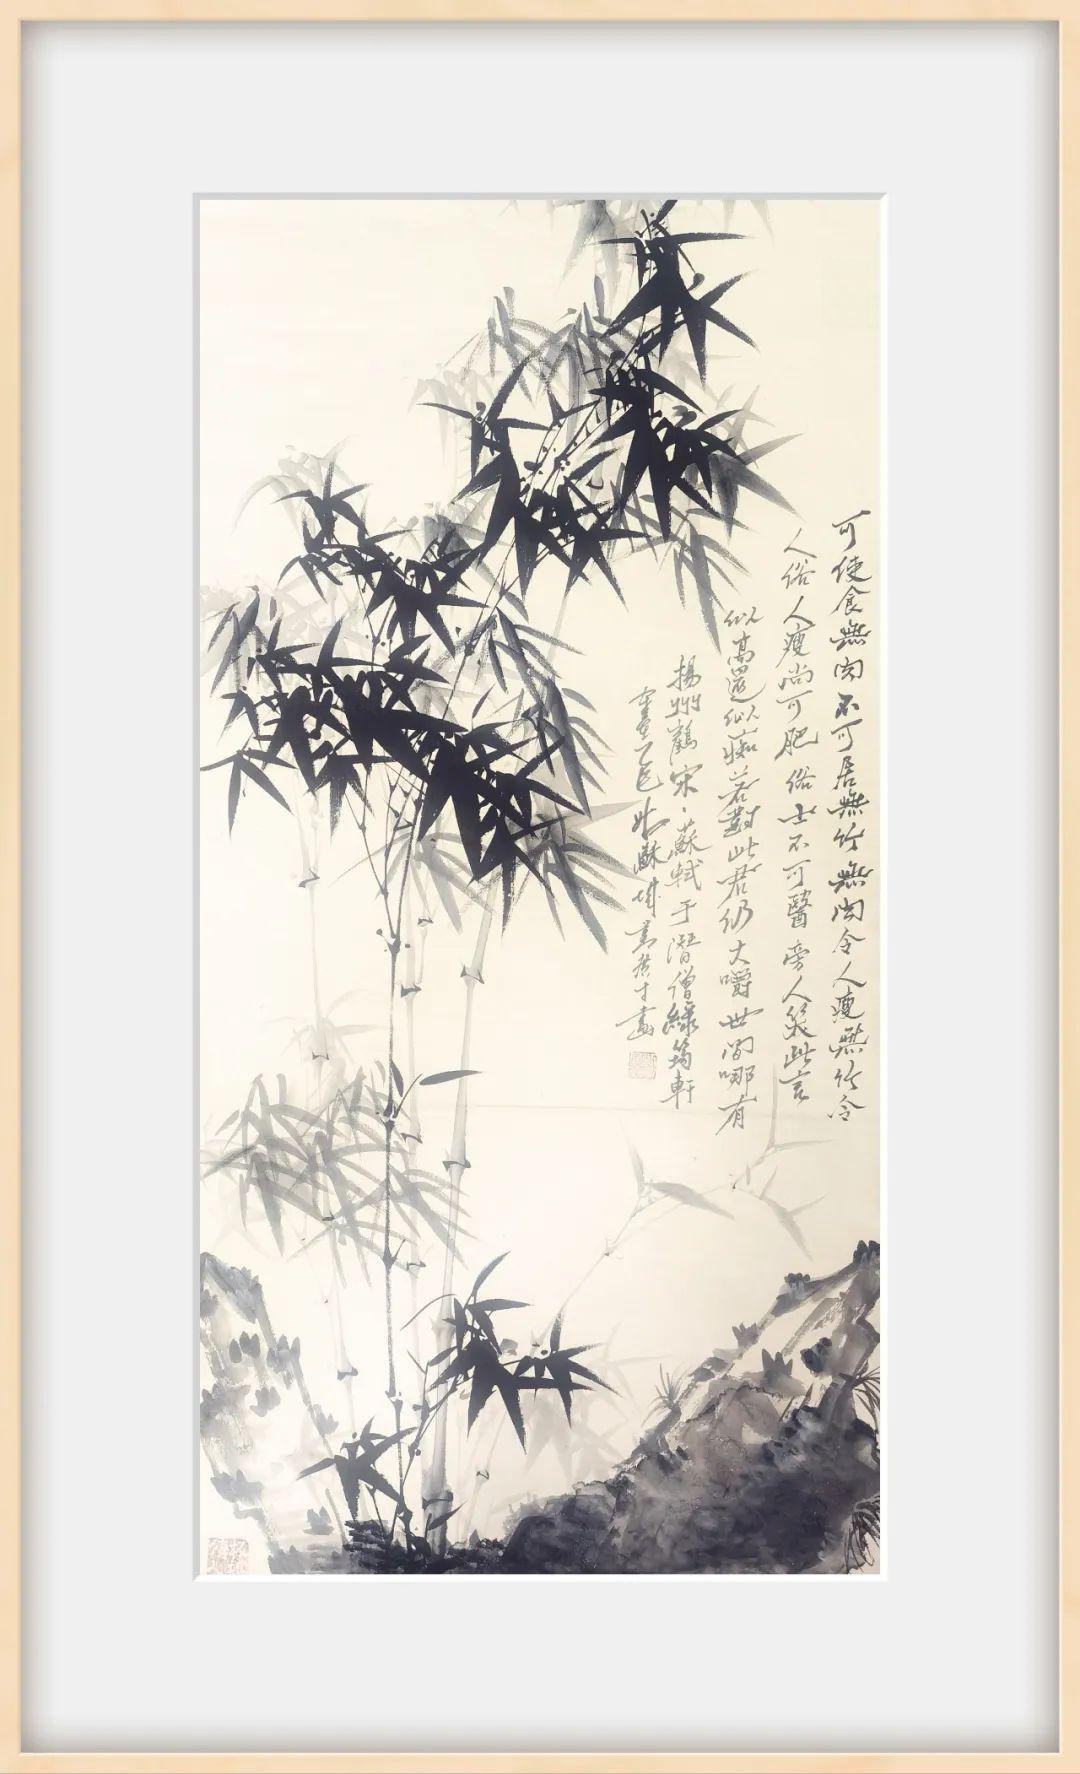 可使食無肉不可居無竹無肉令人瘦無竹令
人俗人瘦尚可肥俗士不可醫旁人笑此言
似高還似痴若對此君仍大嚼世間哪有
揚州鶴宋·蘇軾于潛僧綠筠軒
乙巳 蘇城 畫